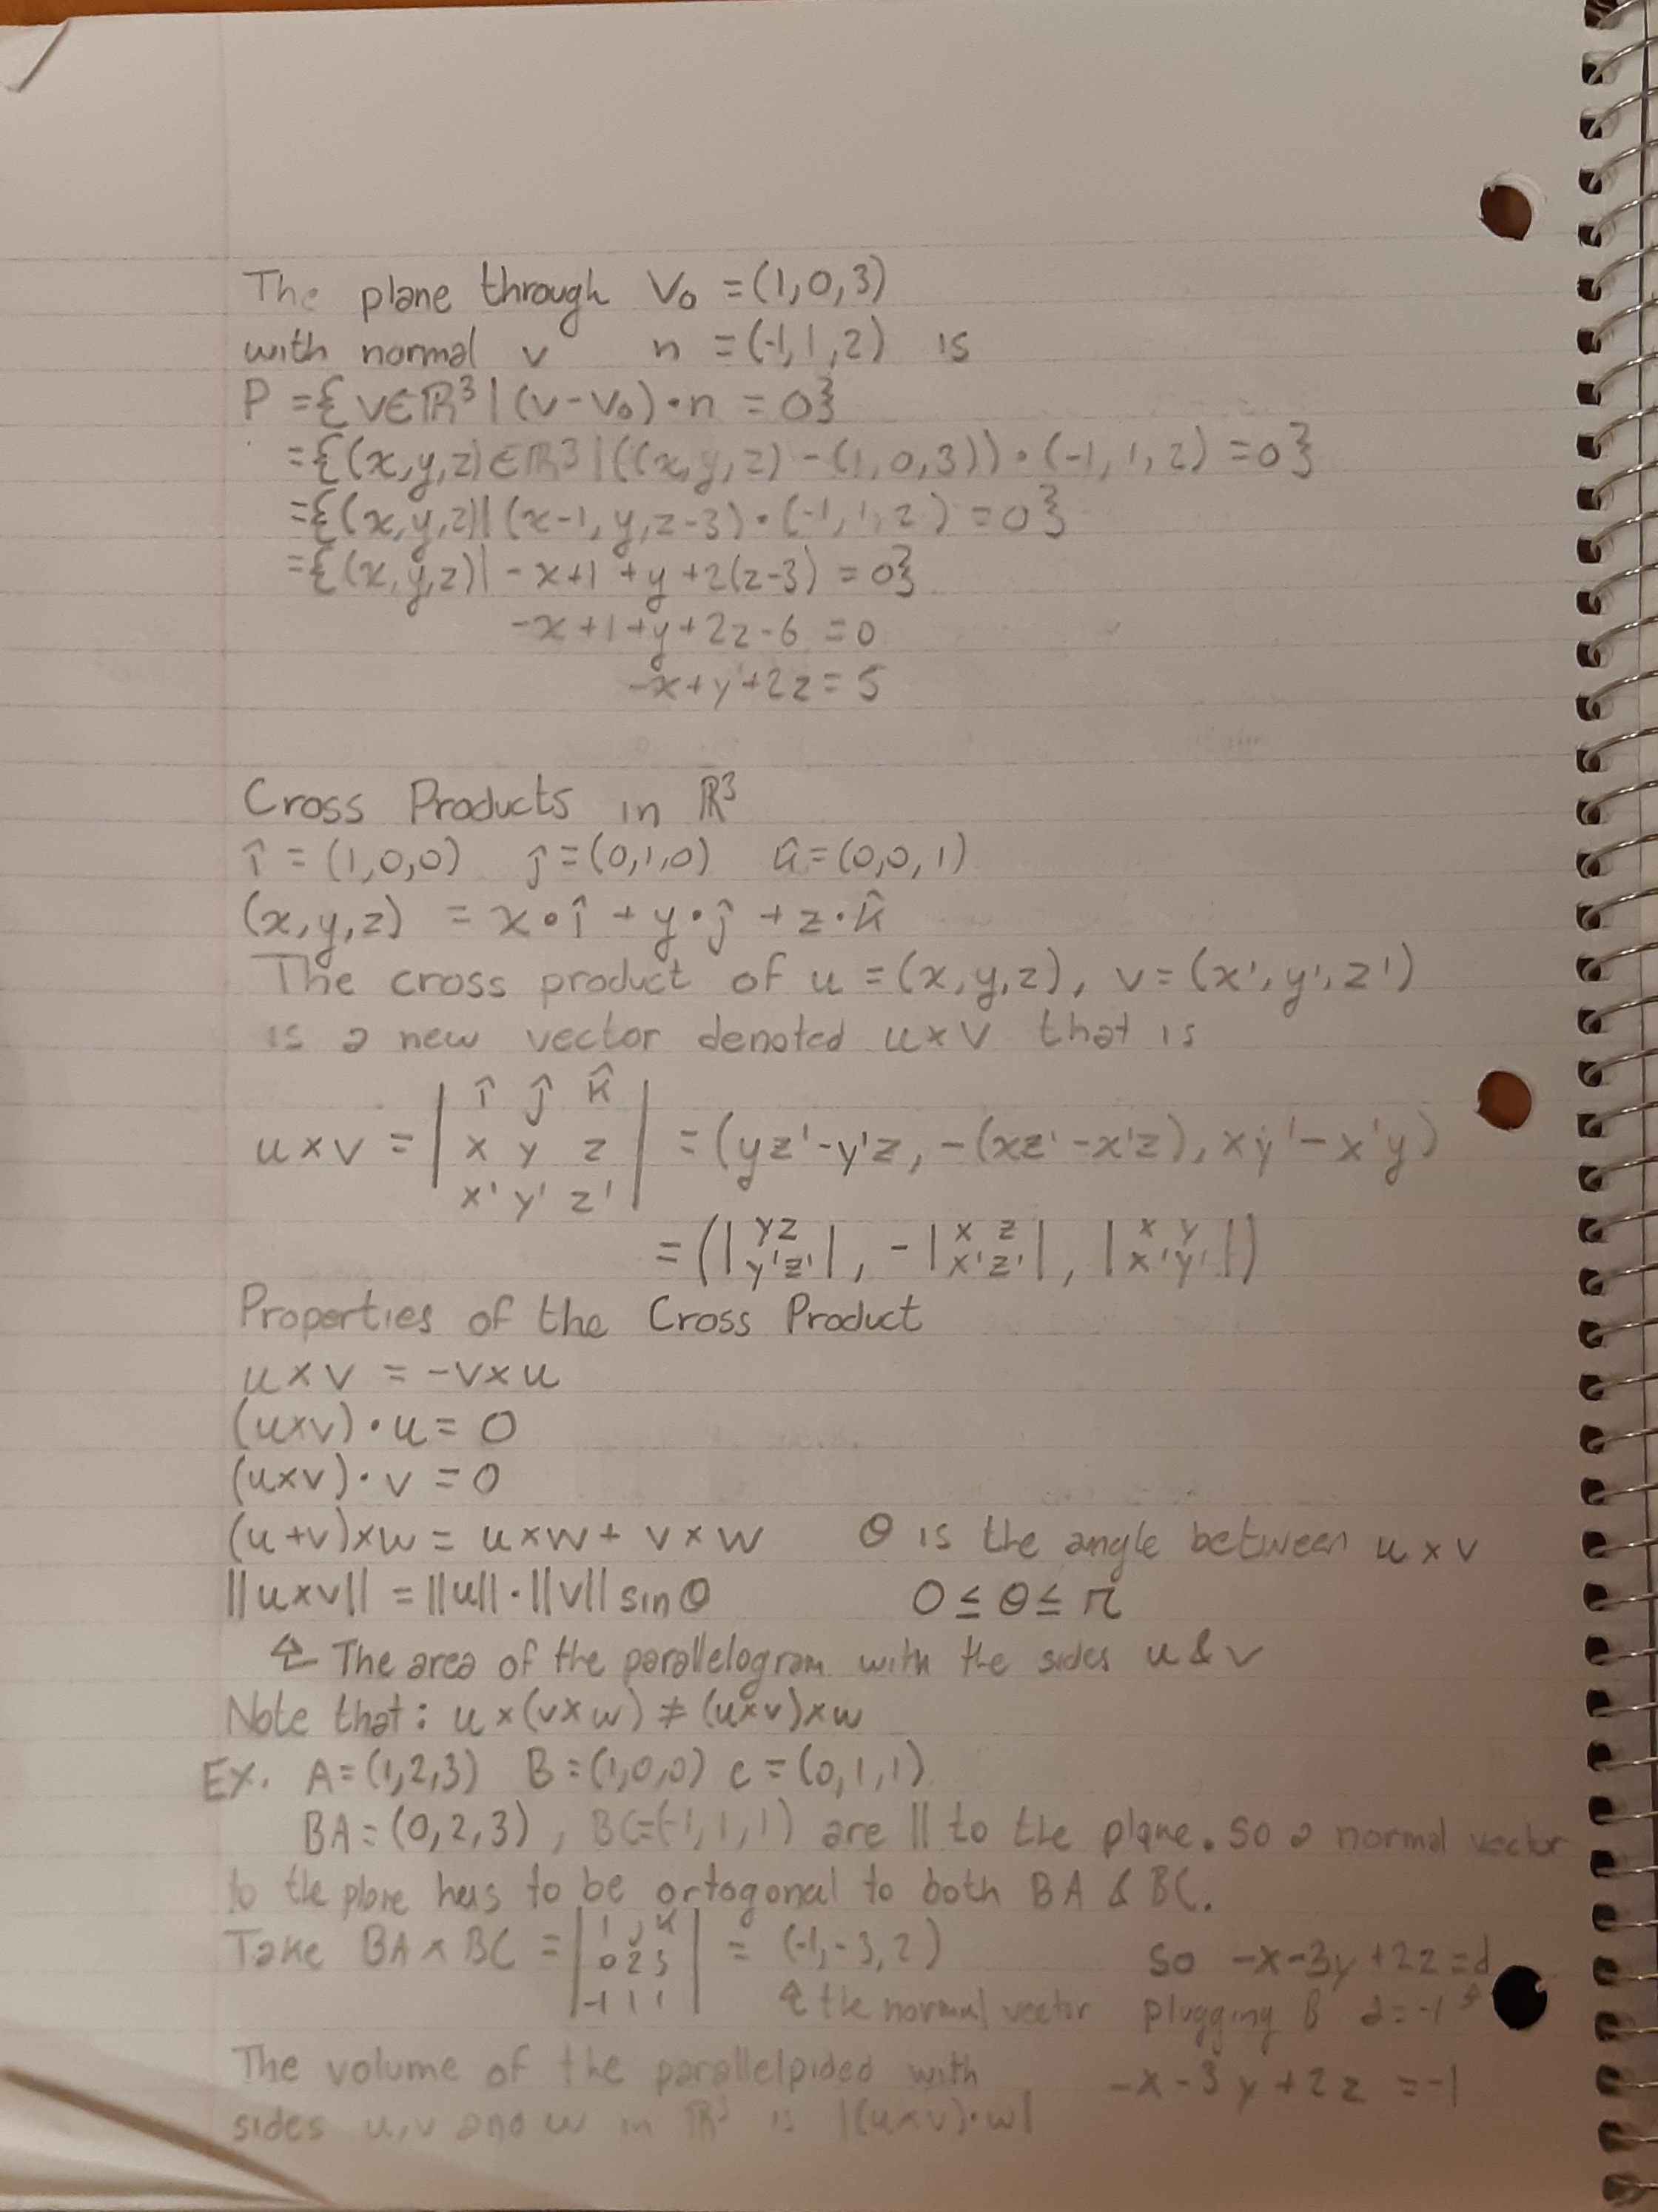 The plane through V₀ = (1,0,3)
with normal v n = (-1,1,2) is
P = {v∈ℝ³ | (v-v₀)•n = 0}
= {(x,y,z)∈ℝ³ | ((x,y,z) - (1,0,3))•(-1,1,2) = 0}
= {(x,y,z) | (x-1,y,z-3)•(-1,1,2) = 0}
= {(x,y,z) | -x+1+y+2(z-3) = 0}
-x+1+y+2z-6 = 0
-x+y+2z = 5
Cross Products in ℝ³
î = (1,0,0) ĵ = (0,1,0) k̂ = (0,0,1)
(x,y,z) = x•î + y•ĵ + z•k̂
The cross product of u = (x,y,z), v = (x',y',z')
is a new vector denoted u×v that is
î ĵ k̂
u×v = | x y z | = (yz'-y'z, -(xz'-x'z), xy'-x'y)
x' y' z'
= (| y z |, -| x z |, | x y |)
y' z' x' z' x' y'
Properties of the Cross Product
u×v = -v×u
(u×v)•u = 0
(u×v)•v = 0
(u+v)×w = u×w + v×w θ is the angle between u × v
||u×v|| = ||u||•||v|| sinθ 0 ≤ θ ≤ π
↑ The area of the parallelogram with the sides u & v
Note that: u×(v×w) ≠ (u×v)×w
Ex. A = (1,2,3) B = (1,0,0) c = (0,1,1)
BA = (0,2,3), BC = (-1,1,1) are || to the plane. So a normal vector
to the plane has to be ortogonal to both BA & BC.
i j k
Take BA × BC = | 0 2 3 | = (-1,-3,2) so -x-3y+2z = d
-1 1 1 ↑ the normal vector plugging B d = -1 ↑
The volume of the parallelpided with -x-3y+2z = -1
sides u,v and w in ℝ³ is |(u×v)•w|